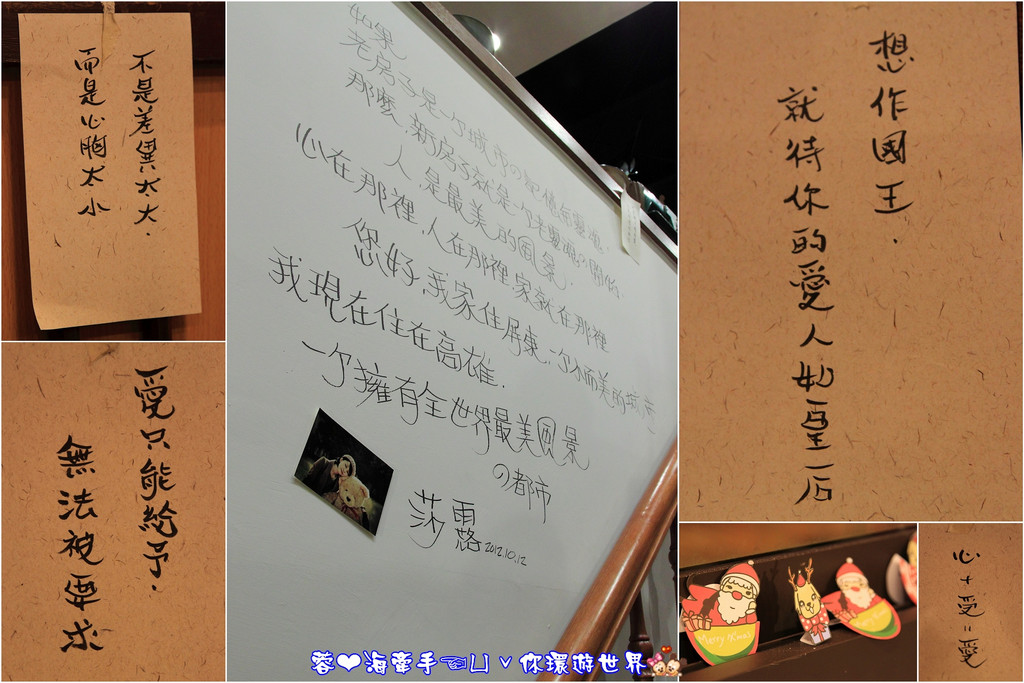 不是差異太大.
而是心胸太小
愛只能給予.
無法被要求
如果
老房子是一个城市の記憶與靈魂.
那麼,新房子就是一个老靈魂の開始.
人,是最美的風景.
心在那裡,人在那裡,家就在那裡
您好,我家住屏東,一个小而美的城市
我現在住在高雄.
一个擁有全世界最美風景
の都市
莎露
2012.10.12
想作國王.
就待你的愛人如皇后
Merry X'mas
心+受=愛
蓉❤海牽手
你環遊世界